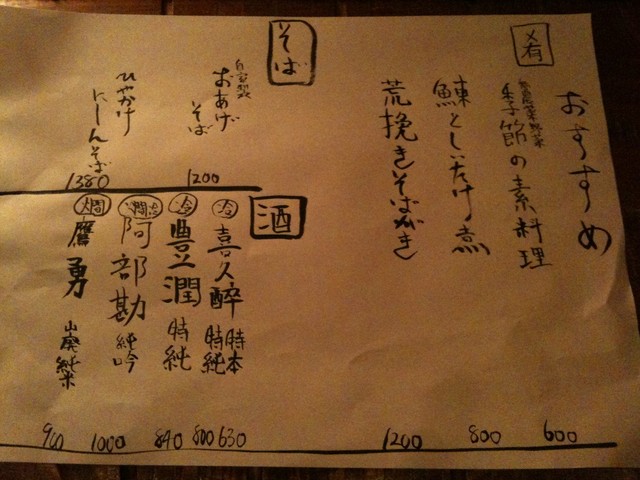 おすすめ
肴
無農薬野菜
季節の素料理 600
鰊としいたけ煮 800
荒挽きそばがき 1200
そば
自家製
おあげそば 1200
ひやかけにしんそば 1380
酒
冷 喜久酔 特本 630
特純 800
冷 豊潤 特純 840
阿部勘 純吟 1000
燗 鷹勇 山廃純米 900